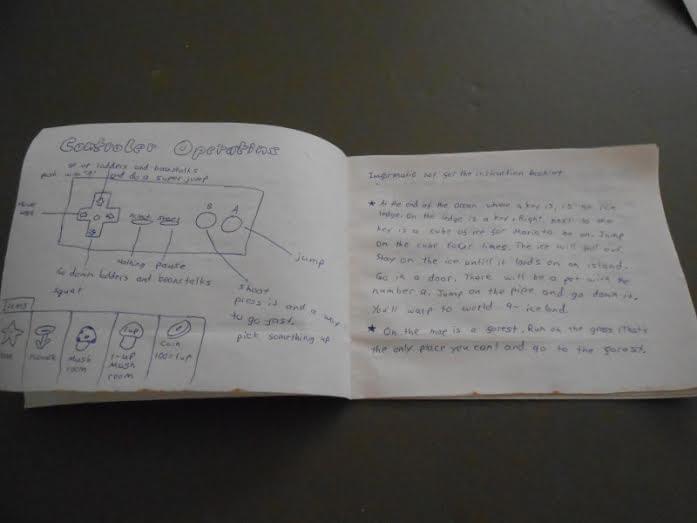 Controler Operatins
go up ladders and beanstalks
push with "A" and do a super jump
move
B
A
nothing pause
jump
Go down ladders and beanstalks
squat
shoot
press B and a way
to go fast.
pick something up
Items
1up
Mush
room
1-up
Mush
room
Coin
100=1up
Informatio not for the instruction booklet
★ At the end of the ocean where a key is, is an ice
ledge. On the ledge is a key. Right next to the
key is a cube of ice for Mario to be on. Jump
on the cube four times. The ice will fall out.
Stay on the ice untill it lands on an island.
Go in a door. There will be a pot with the
number 9. Jump on the pipe and go down it.
You'll warp to world 9- iceland.
★ On the map is a forest. Run on the grass (thats
the only place you can) and go to the forest.